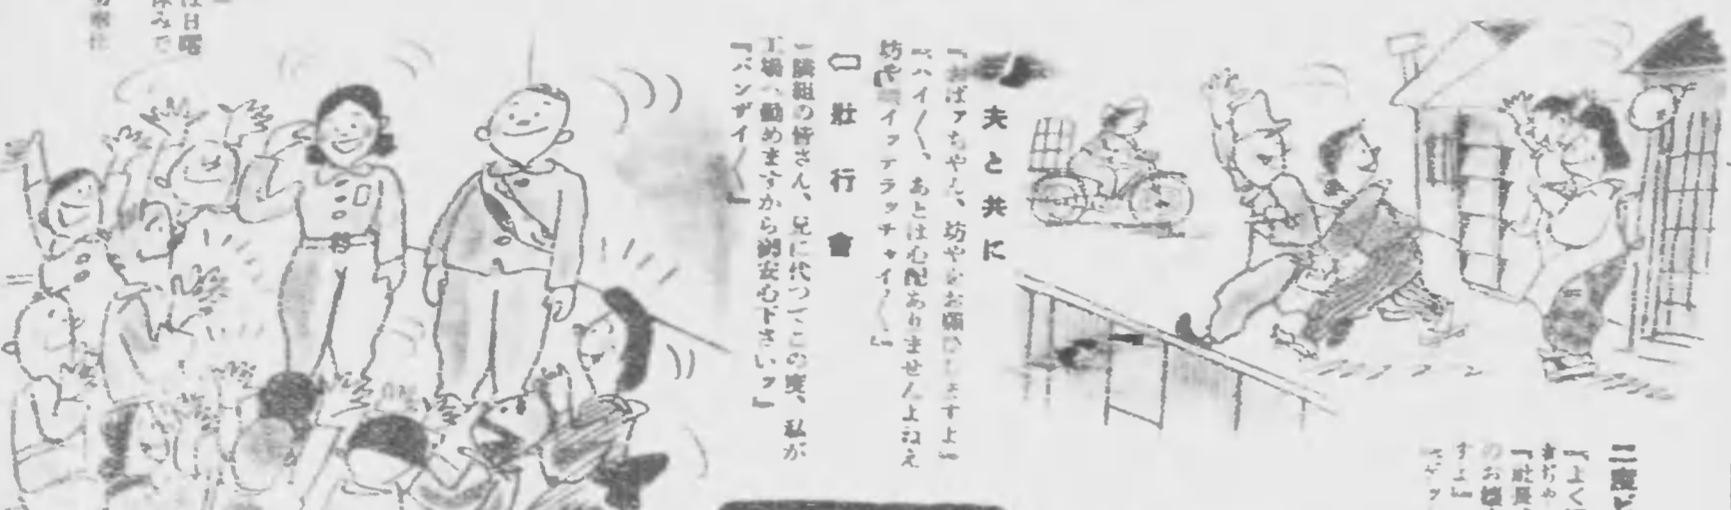 夫と共に
『おばァちやん、坊やをお願ひしますよ』
『ハイ〳〵、あとは心配ありませんよねえ
坊や イッテラッチャイ〳〵』
壯行會
『隣組の皆さん、兄に代つてこの度、私が
工場へ勤めますから御安心下さいッ』
『バンザイ〳〵』
『よく
のお
すよ』
は日曜
休みで